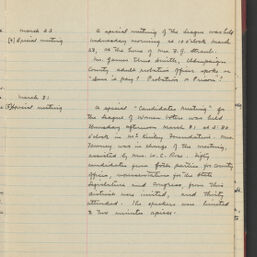 March 23
(7) Special meeting
A special meeting of the League was held
Wednesday morning at 10 o'clock March
23, at the home of Mrs. F. J.
Mr. James Elmo Smith, Champaign
County adult probation officer spoke on
"Sam is pay! Probation or Prison"!
March 31
(8) Special meeting
A special "Candidates Meeting" for
the League of Women Voters was held
Thursday afternoon March 31 at 3:30
o'clock in McKinley Foundation. Mrs.
was in charge of the meeting,
assisted by Mrs. W. C. Rose. Eighty
candidates from both parties for County
offices, representatives for the State
Legislature and Congress, from this
district were invited, and thirty
attended. The speakers were limited
to two minutes apiece.